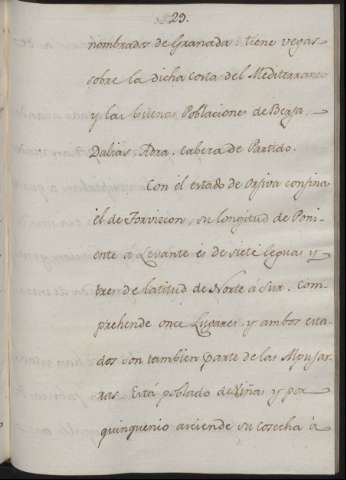 29.
nombrado de Granada tiene vegas
sobre la dicha costa del Mediterraneo
y las buenas Poblaciones de Berja,
Dalias, Adra, cabeza de Partido.
Con el estado de Orjiva confina
él de Torviscon, su longitud de Poni-
ente á Levante és de siete leguas y
tres de latitud de Norte a Sur. Com-
prehende once Lugares, y ambos esta-
dos son tambien parte de las Alpujar-
ras. Está poblado de Viñas y por
quinquenio asciende su cosecha á